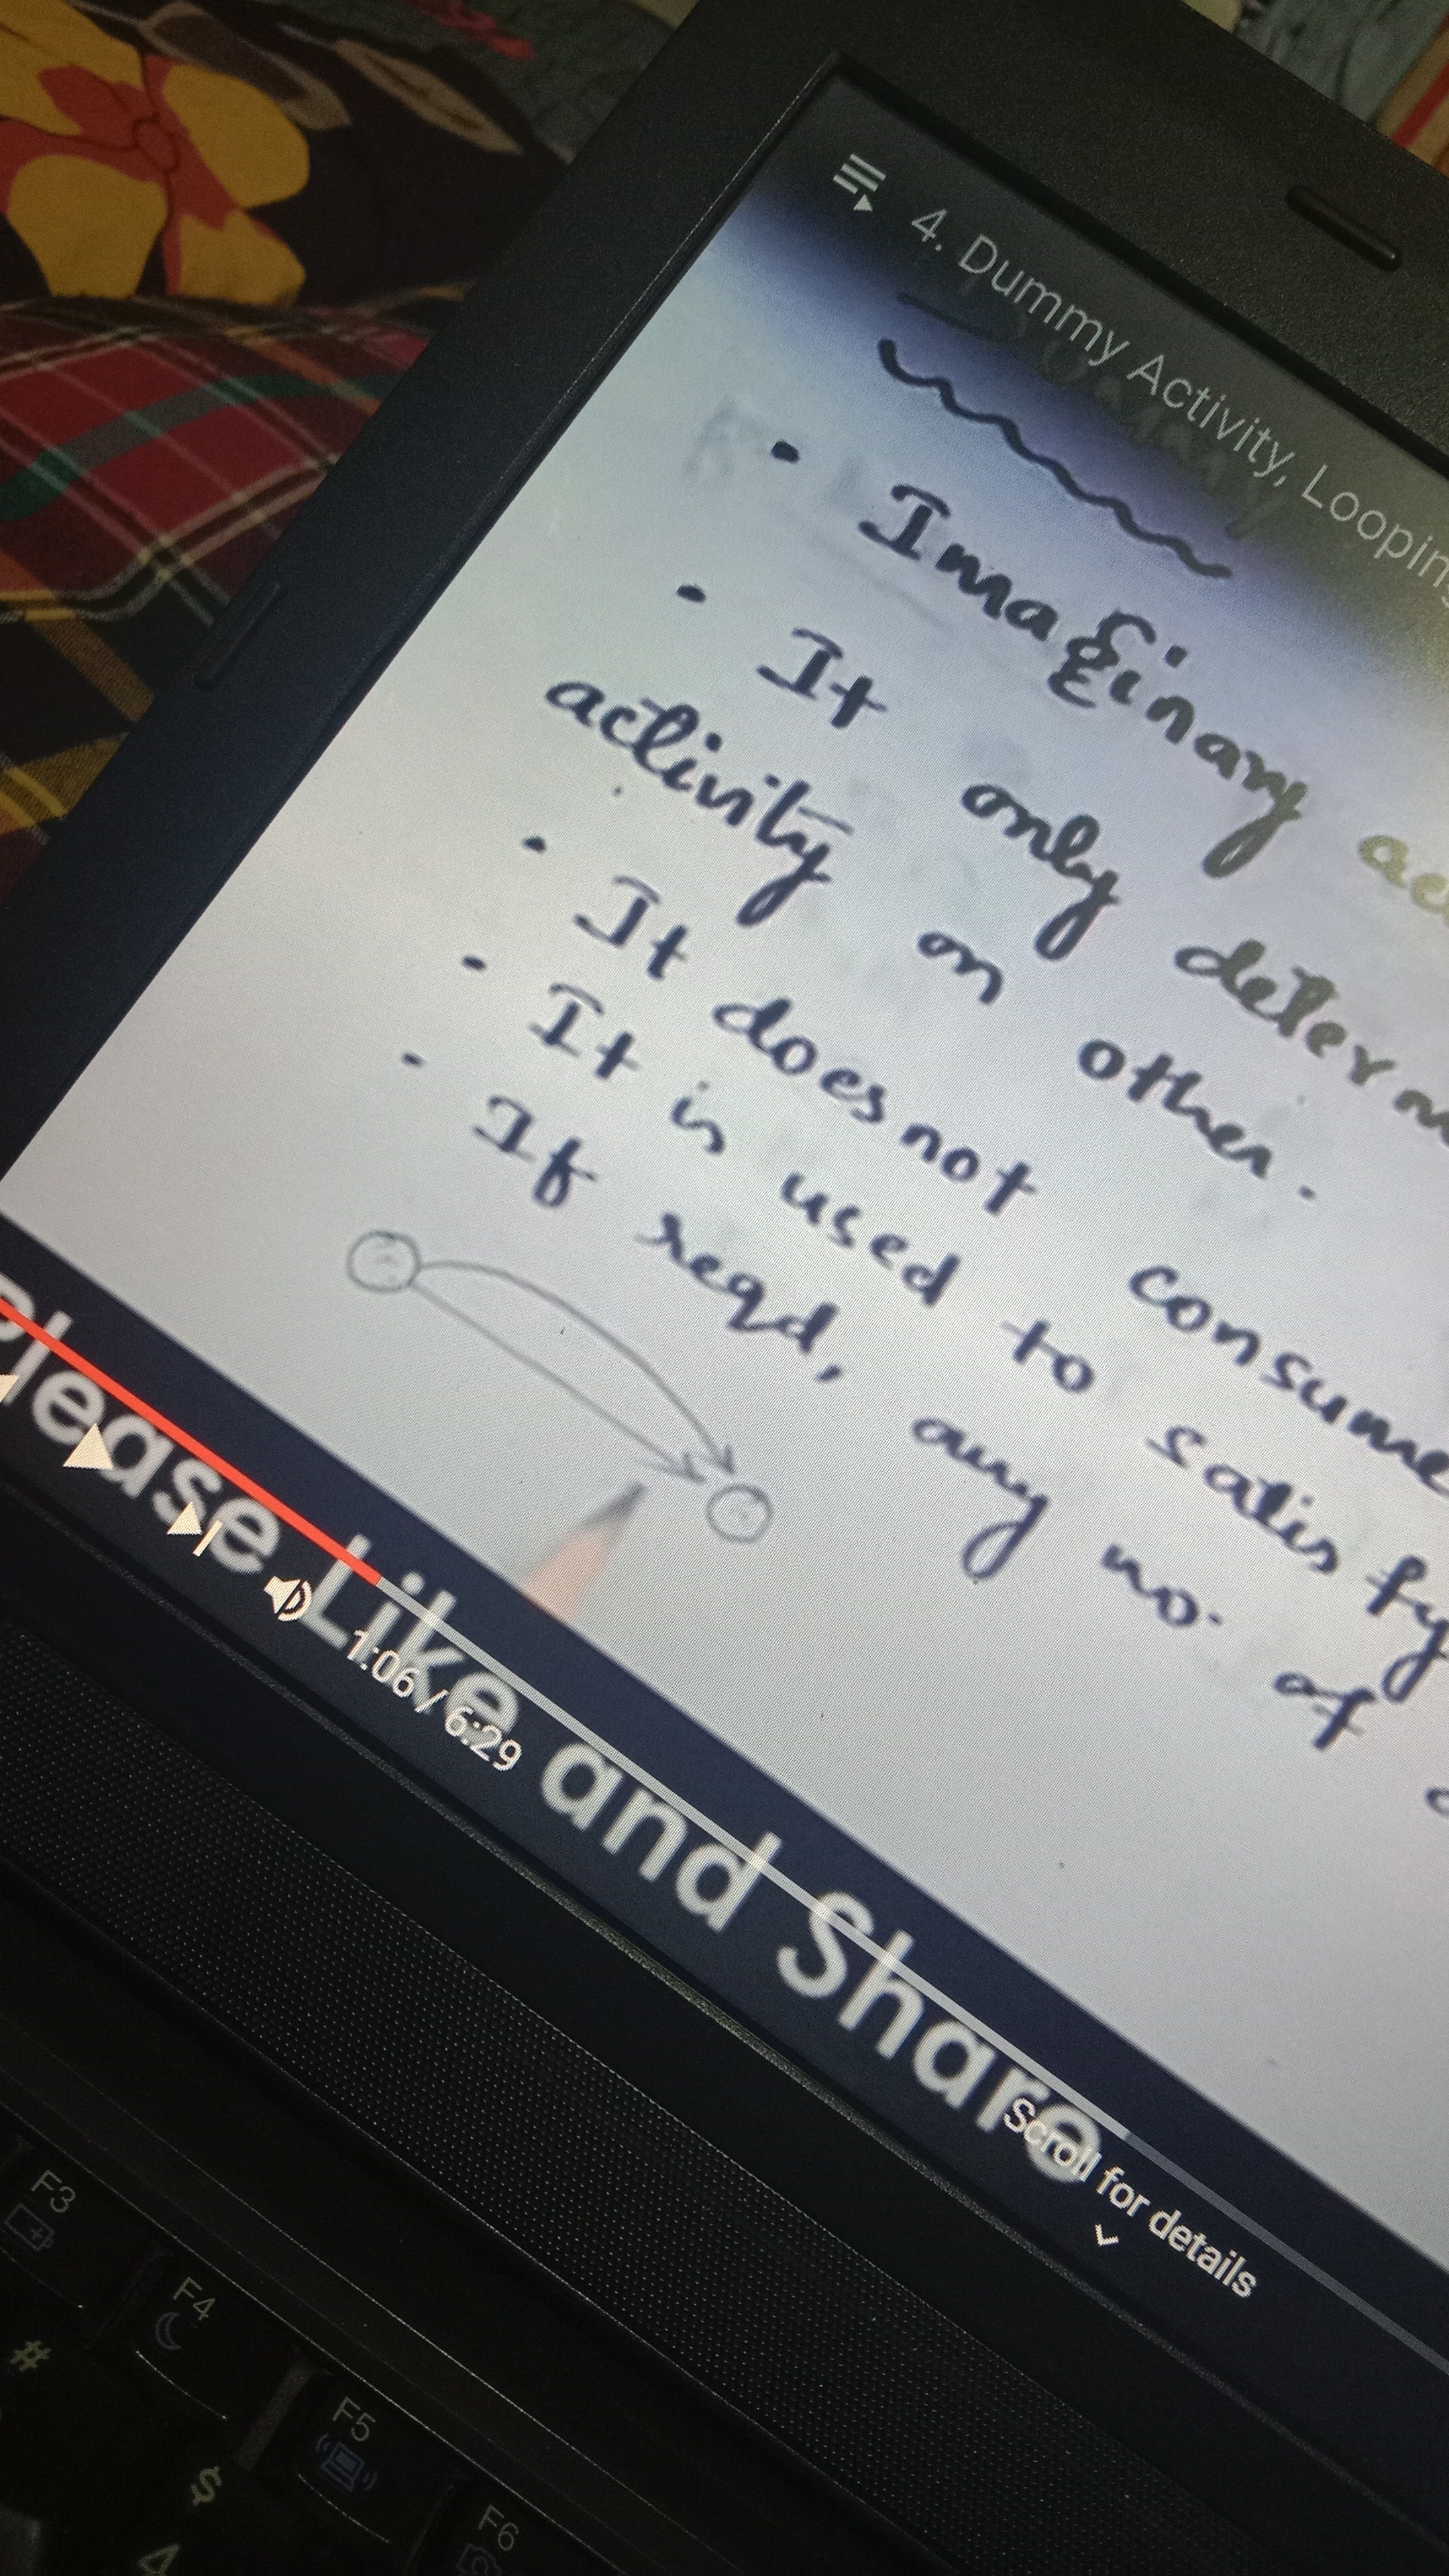 4. Dummy Activity, Looping
• Imaginary
• It only
activity on other.
• It does not consume
• It is used to satisfy
• If reqd, any no. of
Please Like and Share
1:06 / 6:29
Scroll for details
F3
F4
F5
F6
#
$
4